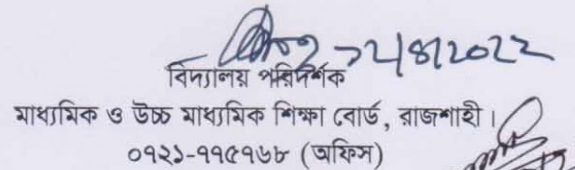 ২/৪/2022
বিদ্যালয় পরিদর্শক
মাধ্যমিক ও উচ্চ মাধ্যমিক শিক্ষা বোর্ড, রাজশাহী।
০৭২১-৭৭৫৭৬৮ (অফিস)